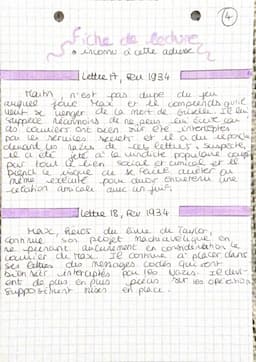 4
Fiche de lecture
• inconnu à cette adresse
Lettre 17, Fev 1934
Martin, n'est pas dupe du jeu
auquel joue Max et il comprends qu'il
veut se venger de la mort de Griselle. Il le
supplie néanmoins de ne plus lui écrire car
courriers ont bien sûr été interceptés
par les services secrets et il a du répondre
devant les nazis de ces lettres. Suspecté,
il a été jeté à la vindicte populaire coupé
par tout lien social et amical et il
prend le risque de se faire arrêter ou
même exécuté pour avoir entretenu une
relation amicale avec un juif.
Lettre 18, Fev 1934
Max, héros du livre de Taylor,
continue son projet machiavélique en
ne prenant aucunement en considération le
courrier de Max. Il continue à placer dans
ses lettres des messages codés qui sont
bien sûr interceptés par les nazis. Ils
ont de plus en plus précis sur les opérations
supposément mises en place.